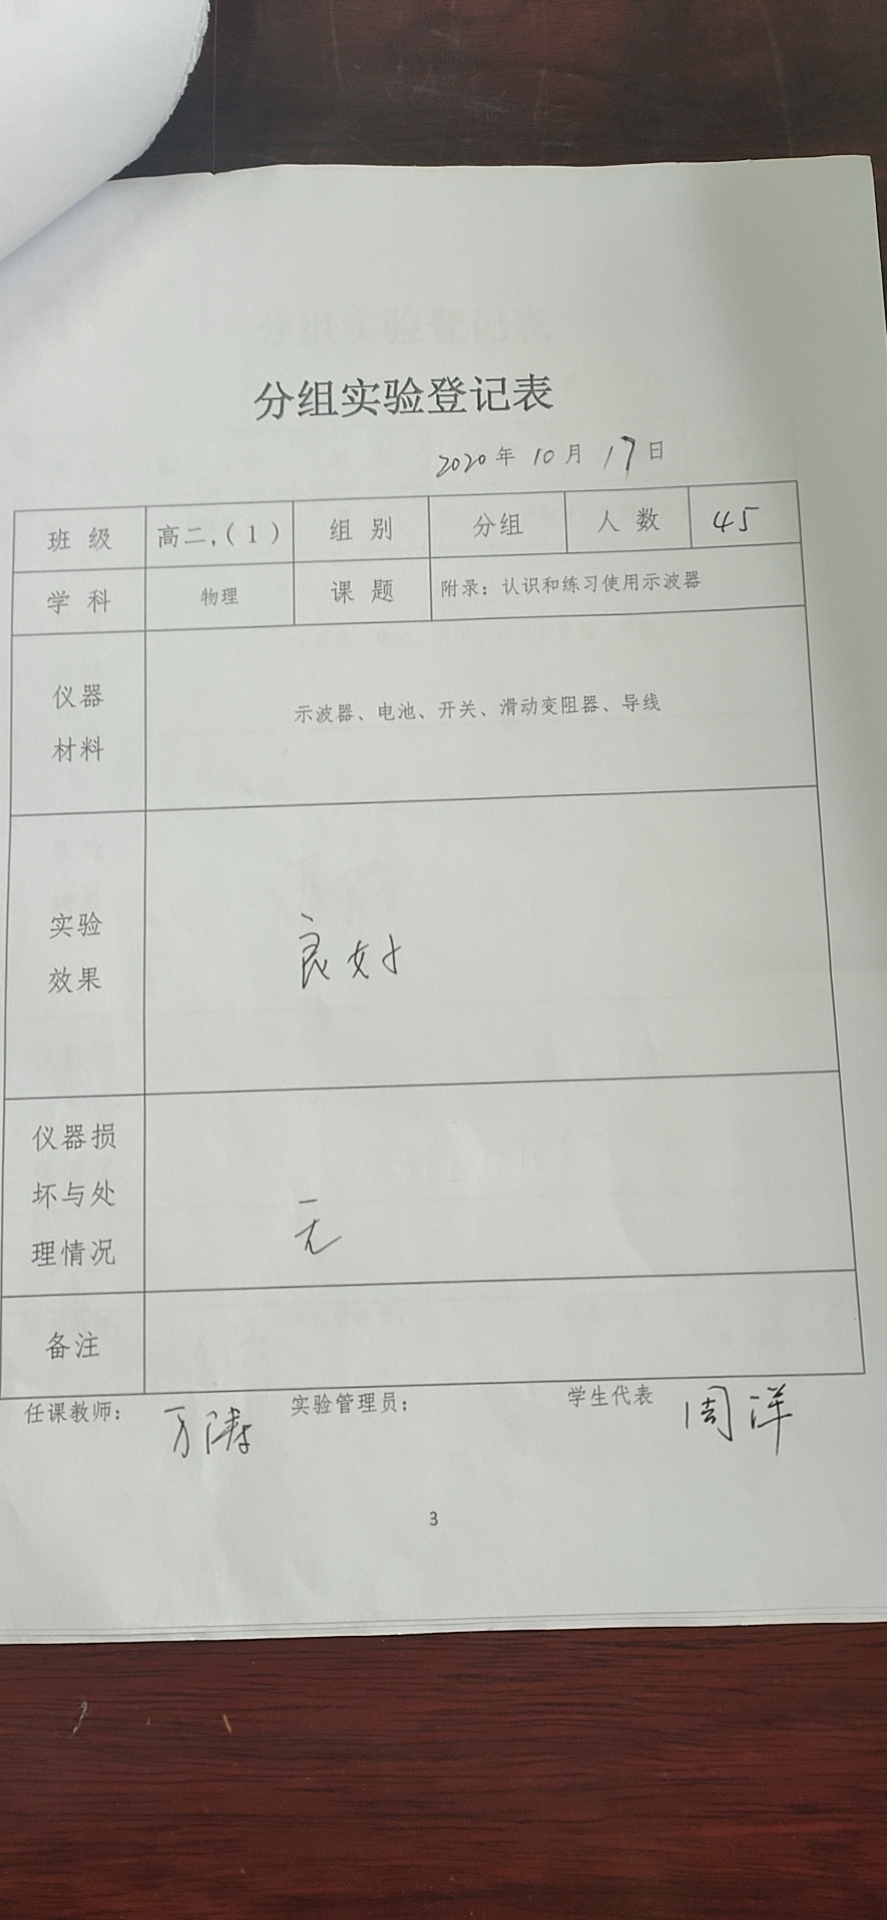 分组实验登记表
2020年10月17日
班级 高二,(1) 组别 分组 人数 45
学科 物理 课题 附录:认识和练习使用示波器
仪器
材料
示波器、电池、开关、滑动变阻器、导线
实验
效果
良好
仪器损
坏与处
理情况
无
备注
任课教师: 万涛 实验管理员: 学生代表 周洋
3